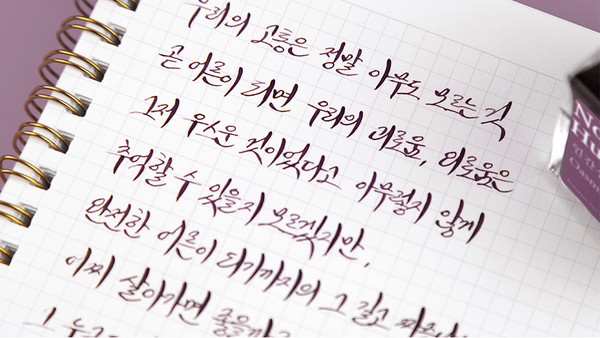 우리의 고통은 정말 아무도 모르는 것
곧 어른이 되면 우리의 괴로움, 외로움은
그저 우스운 것이었다고 아무렇지 않게
추억할 수 있을지 모르겠지만,
완전한 어른이 되기까지의 그 길고
어찌 살아가면 좋을까
그